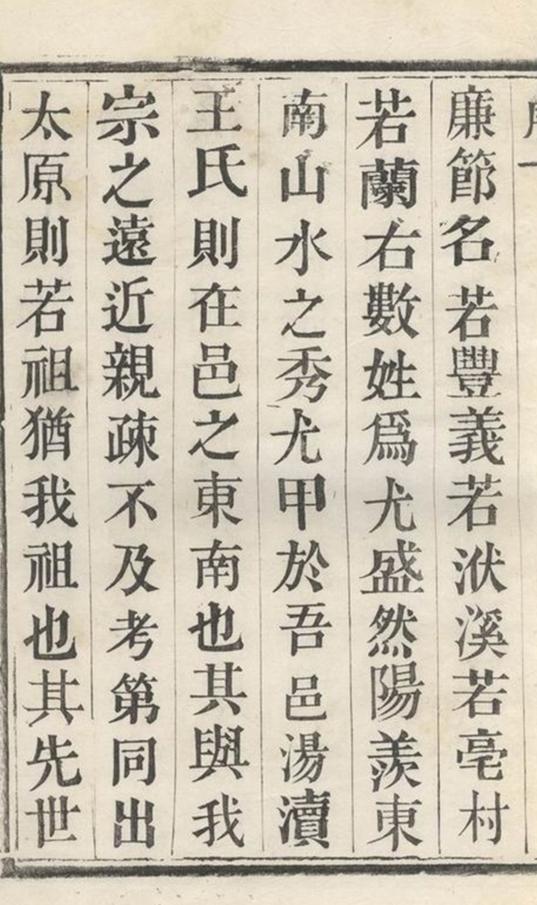 廉節名若豐義若洑溪若亳村
若蘭右數姓爲尤盛然陽羨東
南山水之秀尤甲於吾邑湯瀆
王氏則在邑之東南也其與我
宗之遠近親疎不及考第同出
太原則若祖猶我祖也其先世